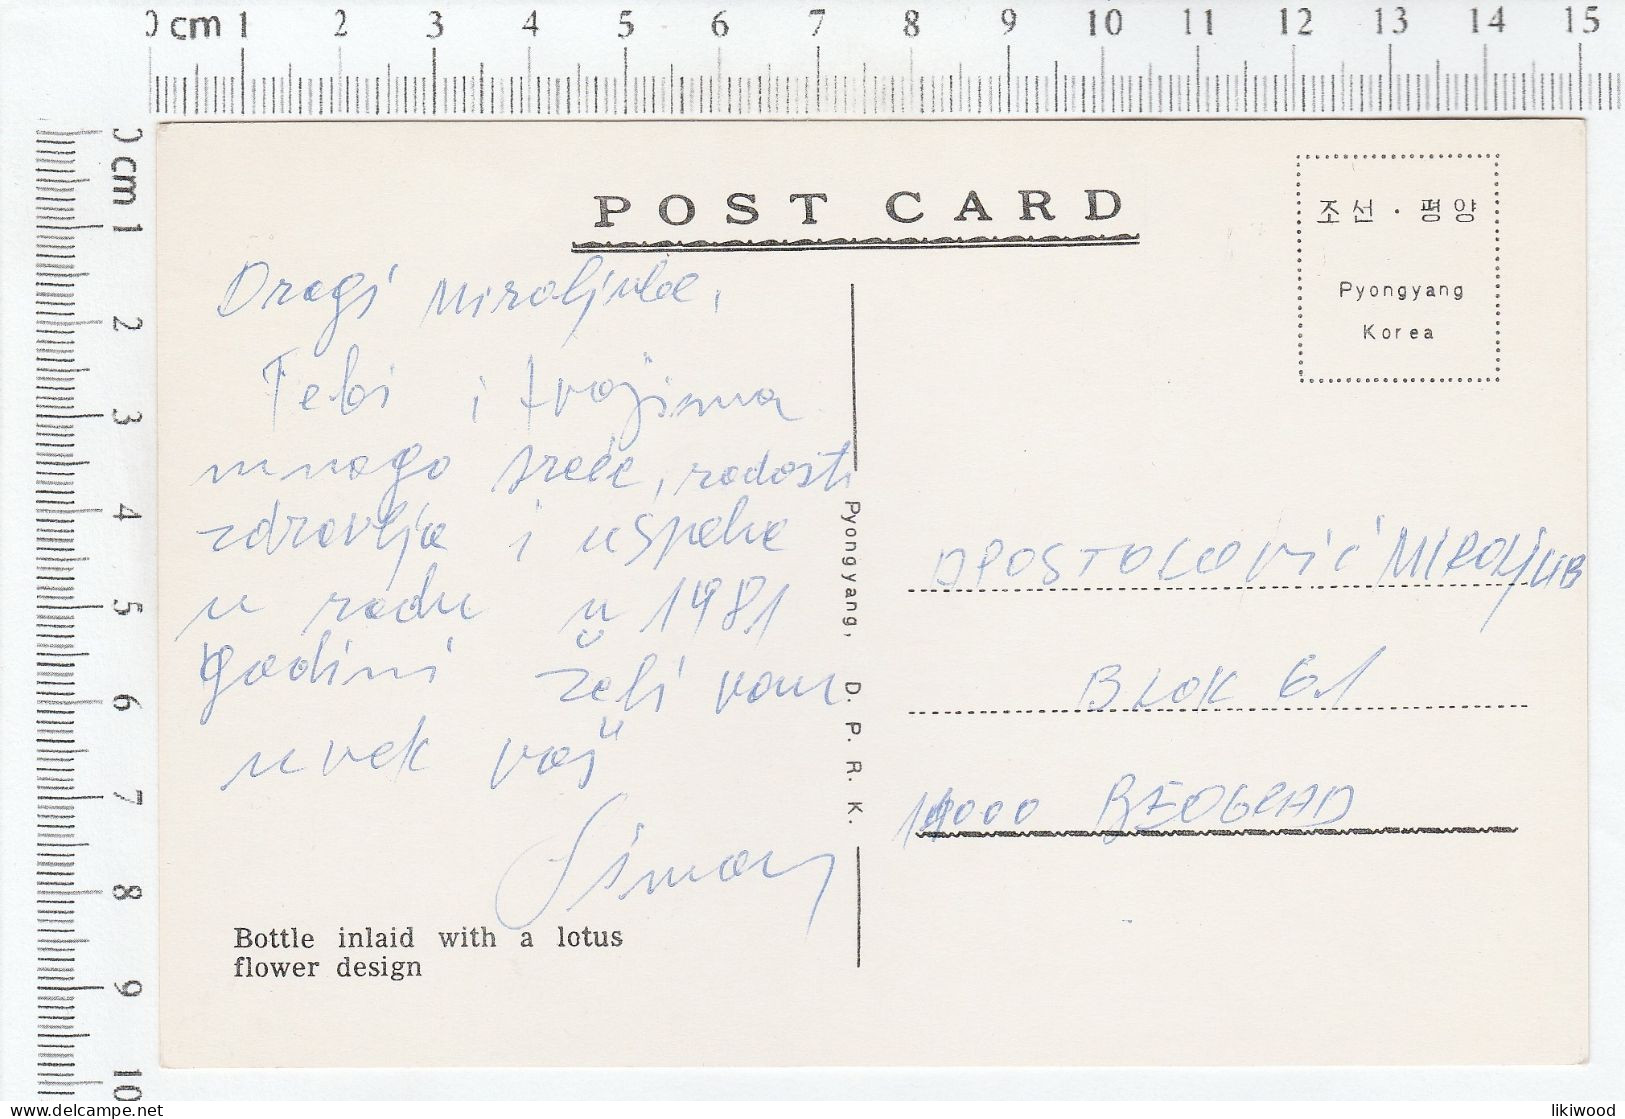 0 cm 1 2 3 4 5 6 7 8 9 10 11 12 13 14 15
0 cm 1 2 3 4 5 6 7 8 9 10
POST CARD
조선 · 평양
Pyongyang
Korea
Dragi Miroljube,
Tebi i tvojima
mnogo sreće, radosti
zdravlja i uspeha
u radu u 1981
godini želi vam
uvek vaš
Simon
Bottle inlaid with a lotus
flower design
Pyongyang, D. P. R. K.
APOSTOLOVIĆ MIROLJUB
BLOK 61
11000 BEOGRAD
likiwood